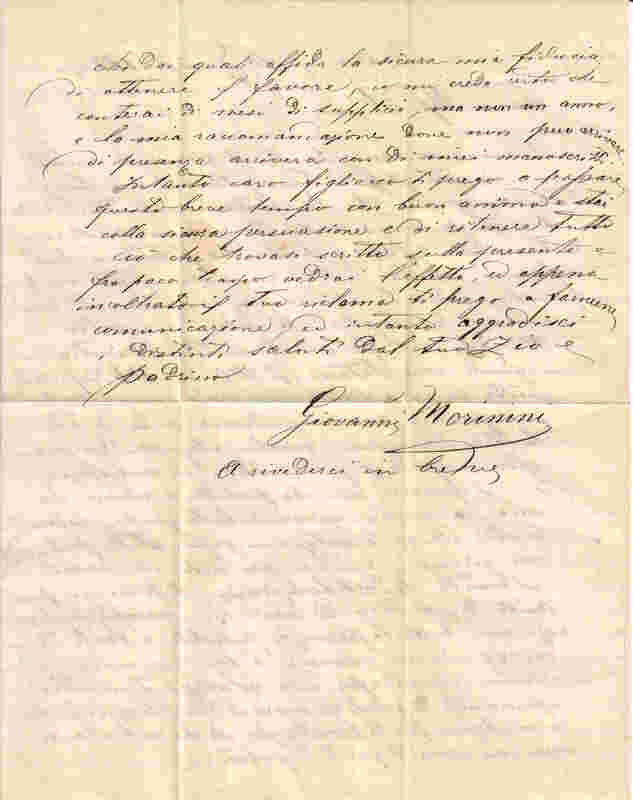 dai quali affida la sicura mia fiducia
di ottenere il favore, e mi credo certo che
conterai di mesi di supplizii, ma non un anno,
e la mia raccomandazione dove non può arrivare
di presenza arriverà con di miei manoscritti
Intanto caro figlioccio ti prego a passare
questo breve tempo con buon animo e stai
colla sicura persuasione e di ritenere tutto
ciò che trovasi scritto sulla presente e
fra poco tempo vedrai l'effetto, ed appena
inoltrato il tuo reclamo ti prego a farmene
comunicazione ed intanto aggradisci
i distinti saluti dal tuo Zio e
padrino
Giovanni Morinini
A rivederci in breve